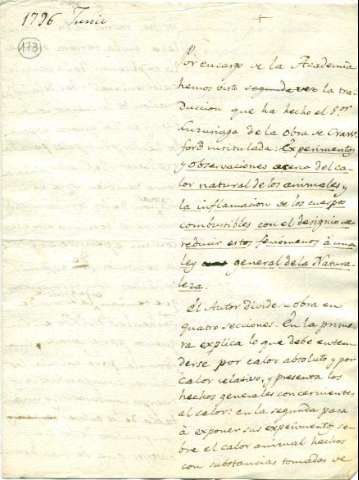 1796 Junio
173
Por encargo de la Academia
hemos visto segunda vez la tra-
duccion que ha hecho el S.or
Luzuriaga de la obra de Craw-
ford intitulada: Experimentos
y observaciones acerca del ca-
lor natural de los animales y
la inflamacion de los cuerpos
combustibles con el designio de
reducir estos fenomenos à una
ley general de la Natura-
leza.
El Autor divide su obra en
quatro secciones. En la prime-
ra explica lo que debe enten-
derse por calor absoluto y por
calor relativo, y presenta los
hechos generales concernientes
al calor: en la segunda pasa
à exponer sus experimentos so-
bre el calor animal hechos
con substancias tomadas de